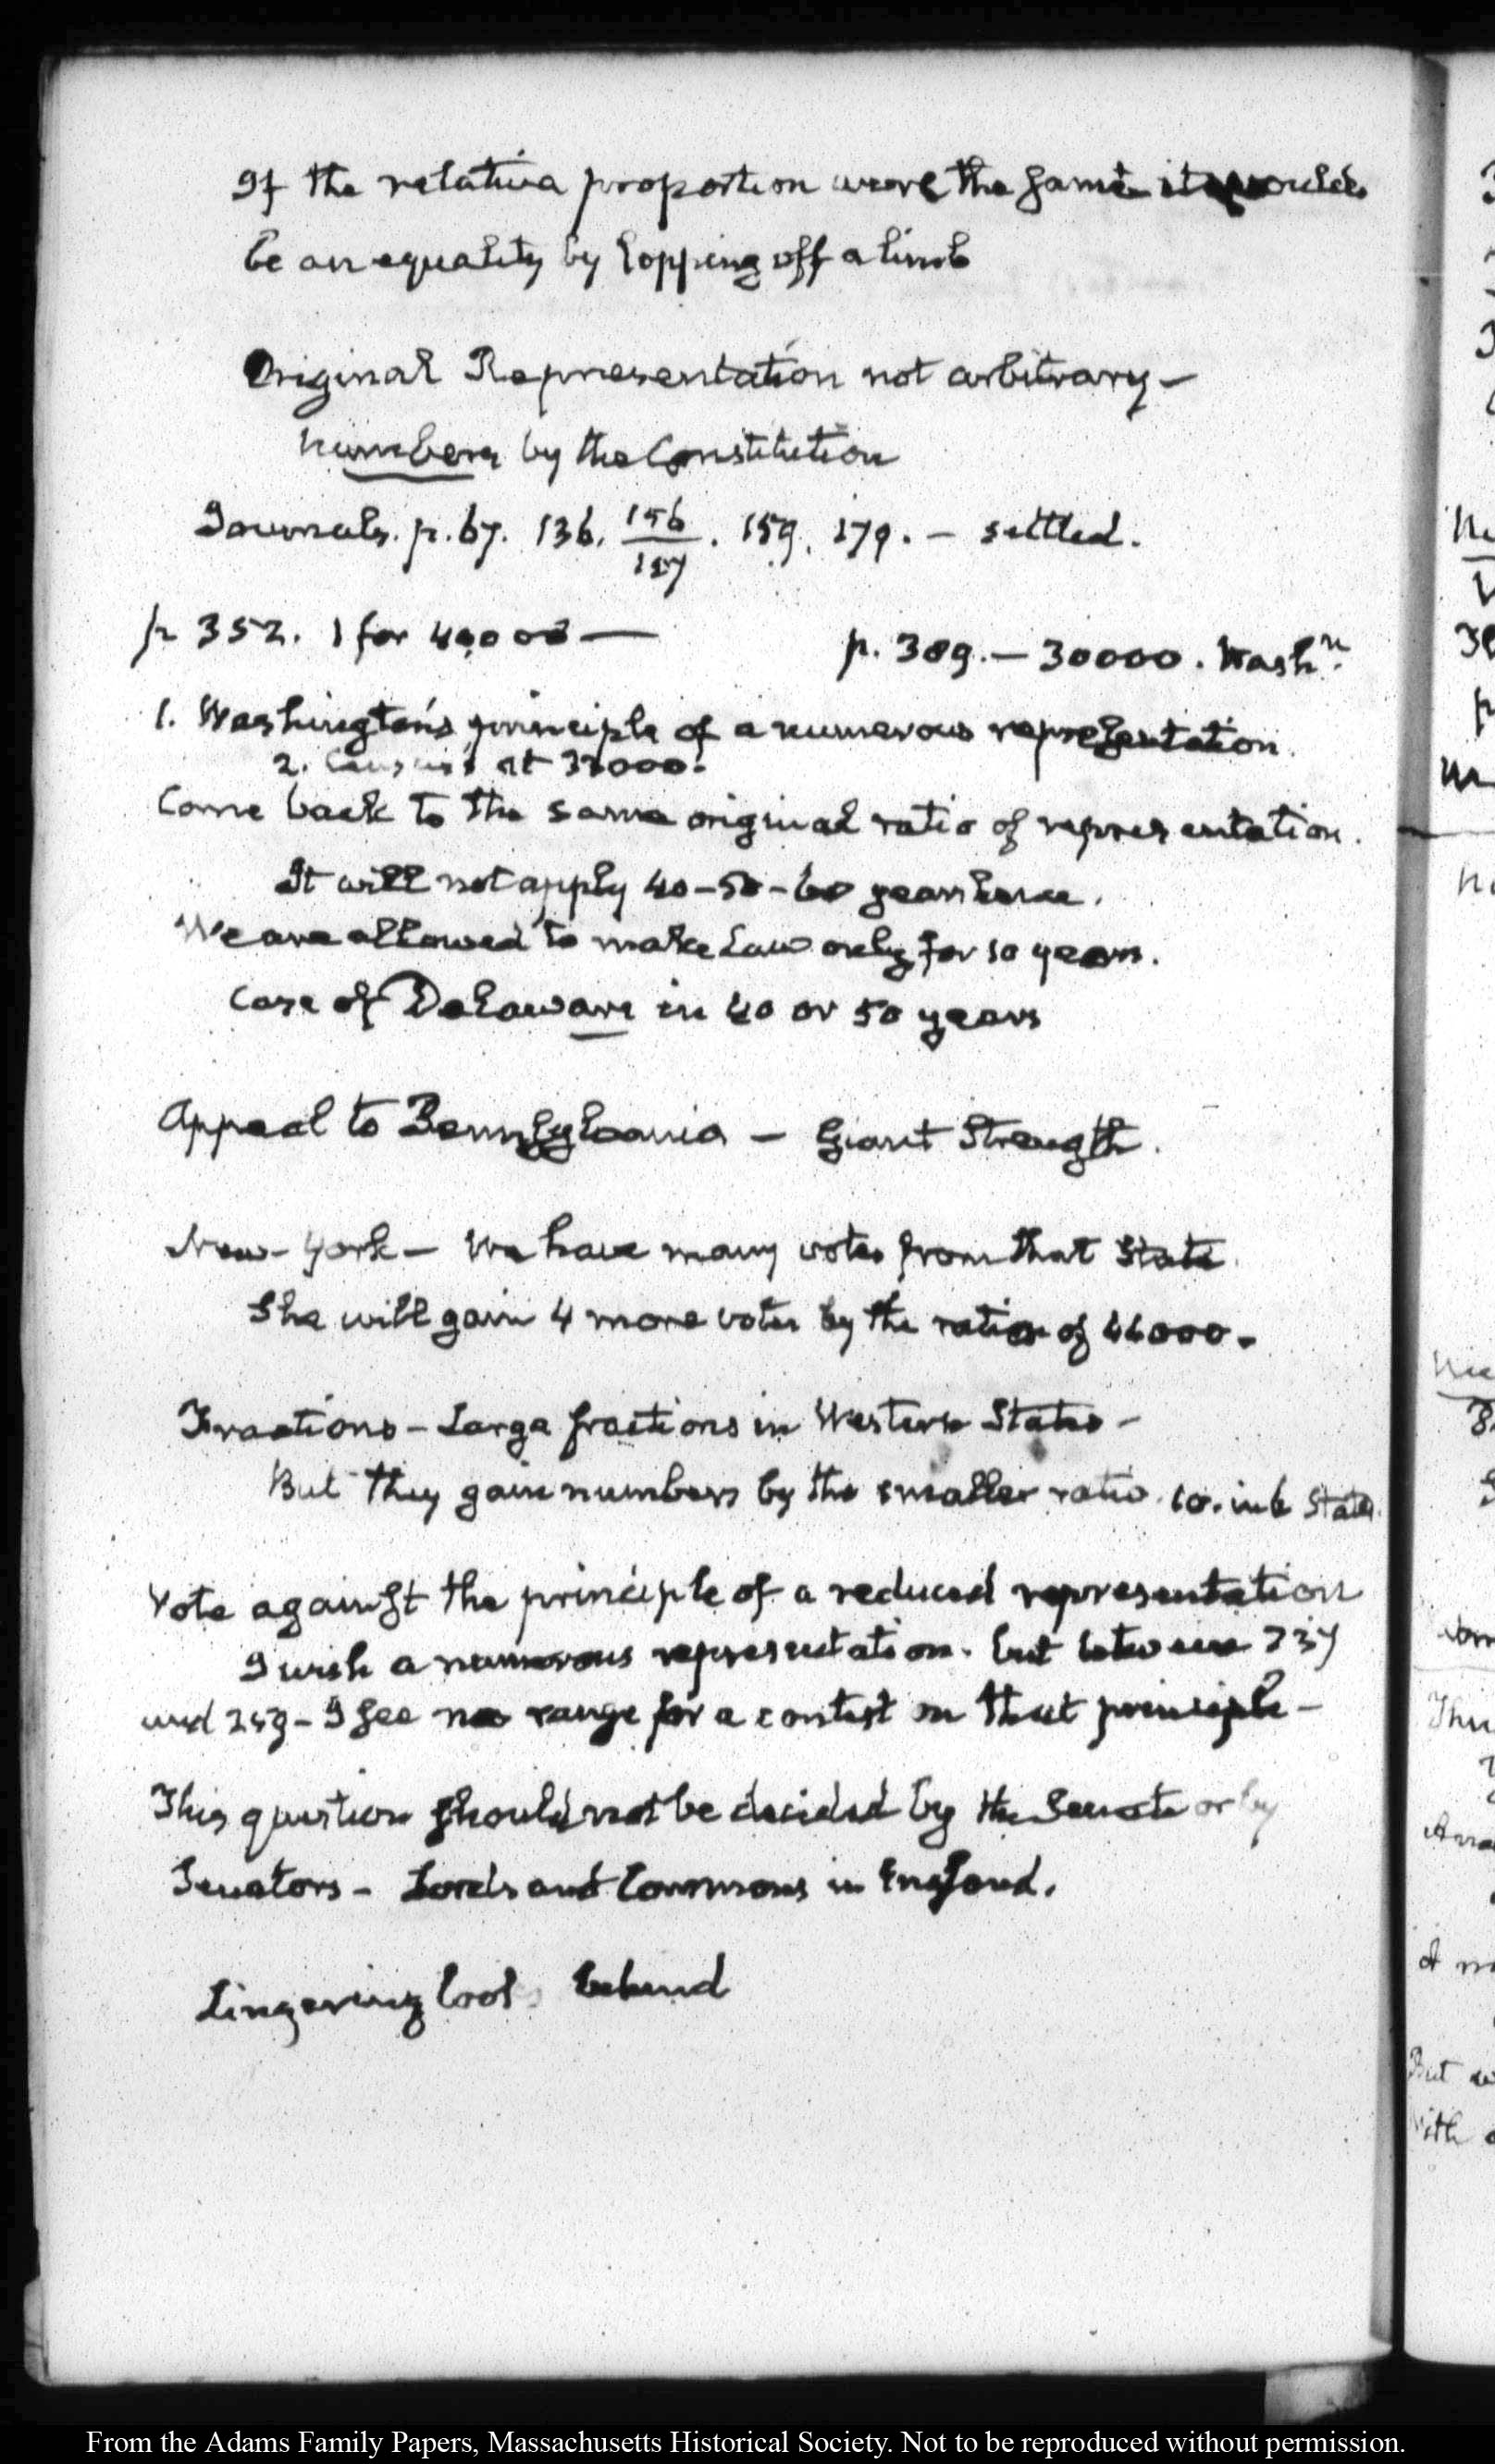 If the relative proportion were the same it would
be an equality by lopping off a limb
Original Representation not arbitrary —
numbers by the Constitution
Journals. p. 67. 136. 156/157. 159. 179. — settled.
p 352. 1 for 40000 —
p. 389. — 30000. Washn.
1. Washington's principle of a numerous representation.
2. Census at 33000.
Come back to the same original ratio of representation.
It will not apply 40–50–60 years hence.
We are allowed to make Law only for 10 years.
Case of Delaware in 40 or 50 years
Appeal to Pennsylvania — Giant Strength.
New-York — We have many votes from that State.
She will gain 4 more votes by the ratio of 44000.
Fractions — Large fractions in Western States —
But they gain numbers by the smaller ratio. 10. in 6 States.
Vote against the principle of a reduced representation
I wish a numerous representation. but between 237
and 259 — I see no range for a contest on that principle —
This question should not be decided by the Senate or by
Senators — Lords and Commons in England.
Lingering look behind
From the Adams Family Papers, Massachusetts Historical Society. Not to be reproduced without permission.